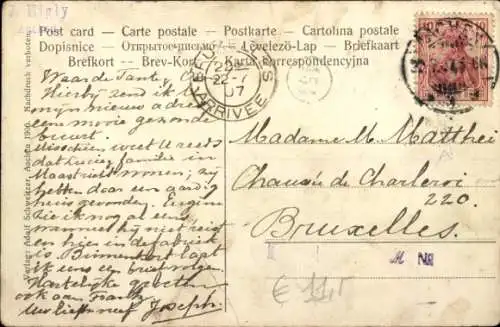 Post card — Carte postale — Postkarte — Cartolina postale
Dopisnice — Открытое письмо — Levelező-Lap — Briefkaart
Brefkort — Brev-Kort — Karta korrespondencyjna
Verlag: Adolf Schweitzer, Aachen 1906. Nachdruck verboten.
ARRIVÉE
22-7
07
Waarde Tante,
Hierbij zend ik U
mijn nieuw adres
een mooie gezonde
buurt.
Misschien weet U reeds
dat Lucien familie in
Maastricht wonen; zij
hebben daar een aardig
huis gevonden. Eugene
zie ik nog al eens,
wanneer hij niet reist
en hier in de fabriek
is. Binnenkort laat
ik eens een brief volgen.
Hartelijke groeten
ook aan Frantz
Uw liefh. neef Joseph.
Madame M. Matthei
Chaussée de Charleroi
220.
Bruxelles.